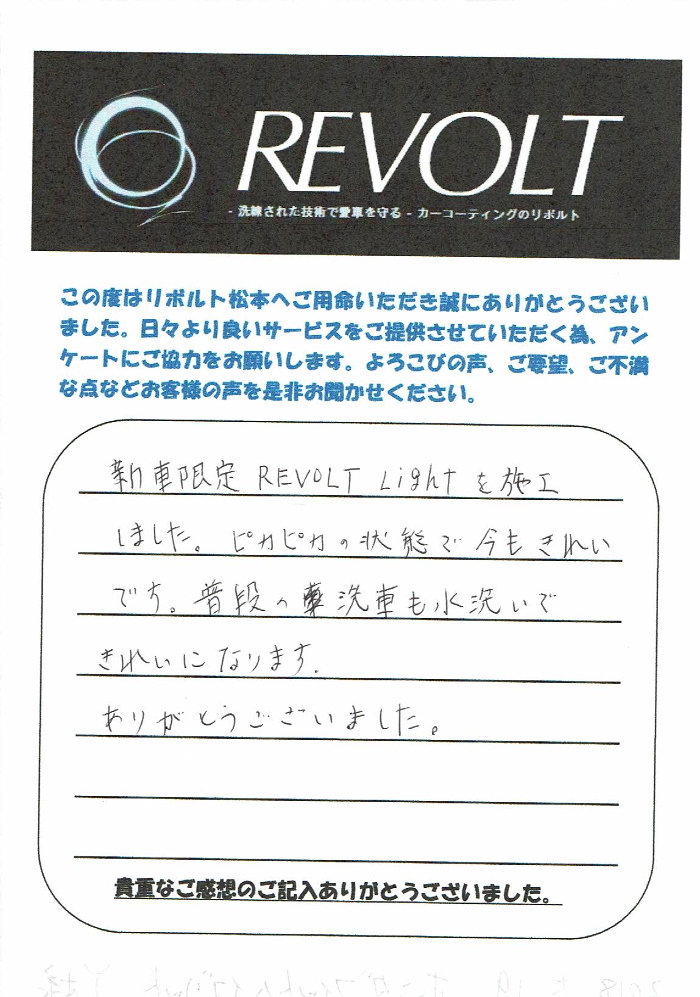 REVOLT
- 洗練された技術で愛車を守る - カーコーティングのリボルト
この度はリボルト松本へご用命いただき誠にありがとうござい
ました。日々より良いサービスをご提供させていただく為、アン
ケートにご協力をお願いします。よろこびの声、ご要望、ご不満
な点などお客様の声を是非お聞かせください。
新車限定 REVOLT Light を施工
しました。ピカピカの状態で今もきれい
です。普段の洗車も水洗いで
きれいになります.
ありがとうございました。
貴重なご感想のご記入ありがとうございました。